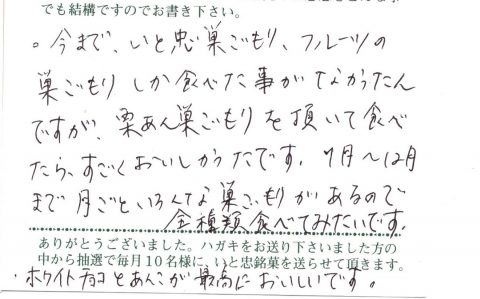 でも結構ですのでお書き下さい。
。今まで、いと忠巣ごもり、フルーツの
巣ごもりしか食べた事がなかったん
ですが、栗あん巣ごもりを頂いて食べ
たら、すごくおいしかったです。9月〜12月
まで月ごといろんな巣ごもりがあるので
全種類食べてみたいです。
ありがとうございました。ハガキをお送り下さいました方の
中から抽選で毎月10名様に、いと忠銘菓を送らせて頂きます。
・ホワイトチョコとあんこが最高においしいです。